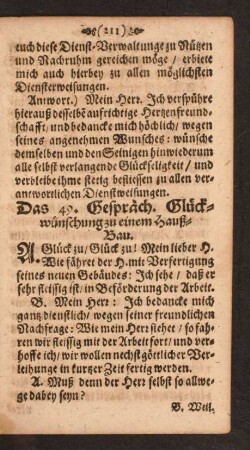 (211)
euch diese Dienst-Verwaltunge zu Nützen
und Nachruhm gereichen möge / erbiete
mich auch hierbey zu allen möglichsten
Diensterweisungen.
Antwort.) Mein Herr. Ich verspühre
hierauß desselbe aufrichtige Hertzenfreund-
schafft / und bedancke mich höchlich / wegen
seines angenehmen Wunsches: wünsche
demselben und den Seinigen hinwiederum
alle selbst verlangende Glückseligkeit / und
verbleibe ihme stetig beflissen zu allen ver-
antwortlichen Dienstweisungen.
Das 49. Gespräch. Glück-
wünschung zu einem Hauß-
Bau.
A. Glück zu / Glück zu! Mein lieber H.
Wie fähret der H. mit Verfertigung
seines neuen Gebäudes: Ich sehe / daß er
sehr fleissig ist / in Beförderung der Arbeit.
B. Mein Herr: Ich bedancke mich
gantz dienstlich / wegen seiner freundlichen
Nachfrage: Wie mein Herr siehet / so fah-
ren wir fleissig mit der Arbeit fort / und ver-
hoffe ich / wir wollen nechst göttlicher Ver-
leihunge in kurtzer Zeit fertig werden.
A. Muß denn der Herr selbst so allwe-
ge dabey seyn?
B. Weil.